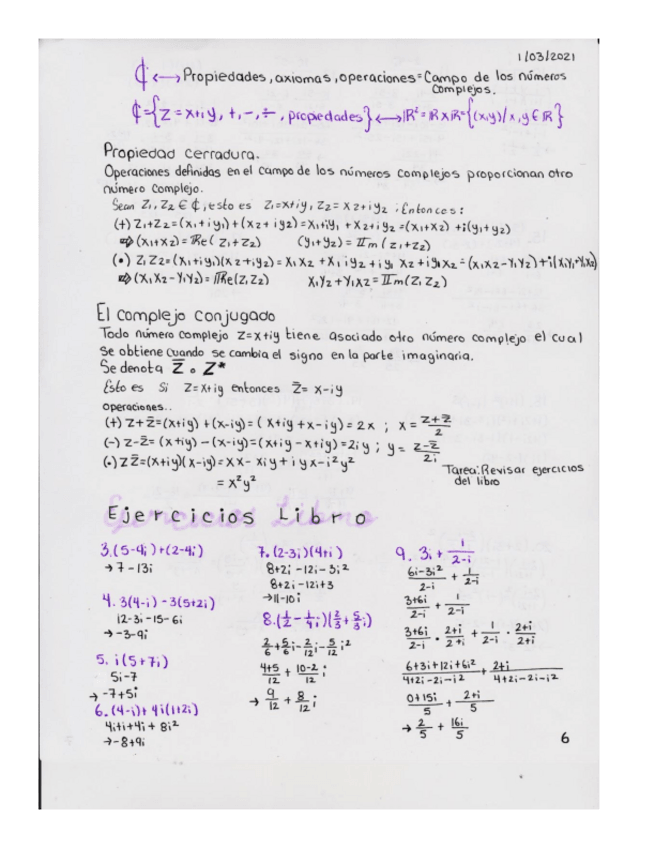 1/03/2021
₵ ⟷ Propiedades, axiomas, operaciones = Campo de los números
Complejos.
₵ = {z = x+iy, +, -, ÷, propiedades} ⟷ IR² = IR X IR = {(x,y)/x,y ∈ IR}
Propiedad cerradura.
Operaciones definidas en el campo de los números complejos proporcionan otro
número complejo.
Sean Z₁, Z₂ ∈ ₵, esto es Z₁=x+iy, Z₂= x₂+iy₂ ; Entonces:
(+) Z₁+Z₂=(x₁+iy₁)+(x₂+iy₂)=x₁+iy₁ +x₂+iy₂ =(x₁+x₂) +i(y₁+y₂)
⇒ (x₁+x₂) = Re(Z₁+Z₂) (y₁+y₂) = IIm(z₁+z₂)
(•) Z₁Z₂=(x₁+iy₁)(x₂+iy₂)= x₁x₂ +x₁iy₂ +iy₁x₂ +iy₁x₂ = (x₁x₂-y₁y₂)+i(x₁y₂+y₁x₂)
⇒ (x₁x₂-y₁y₂) = Re(Z₁Z₂) x₁y₂+y₁x₂ = IIm(Z₁Z₂)
El complejo conjugado
Todo número complejo Z=x+iy tiene asociado otro número complejo el cual
se obtiene cuando se cambia el signo en la parte imaginaria.
Se denota Z̅ o Z*
Esto es Si Z=x+iy entonces Z̅= x-iy
operaciones..
(+) Z+Z̅=(x+iy)+(x-iy)=(x+iy+x-iy)=2x ; x= (z+z̅)/2
(-) z-z̅= (x+iy)-(x-iy)=(x+iy-x+iy)=2iy ; y= (z-z̅)/2i
(•) ZZ̅=(x+iy)(x-iy)=xx-xiy+iyx-i²y²
= x²y²
Tarea: Revisar ejercicios
del libro
Ejercicios Libro
3. (5-9i)+(2-4i)
→ 7-13i
4. 3(4-i)-3(5+2i)
12-3i-15-6i
→ -3-9i
5. i(5+7i)
5i-7
→ -7+5i
6. (4-i)+4i(1+2i)
4i+i+4i+8i²
→ -8+9i
7. (2-3i)(4+i)
8+2i-12i-3i²
8+2i-12i+3
→ 11-10i
8. (1/2 - 1/4 i)(2/3 + 5/3 i)
2/6 + 5/6 i - 2/12 i - 5/12 i²
4+5/12 + 10-2/12 i
→ 9/12 + 8/12 i
9. 3i + 1/2-i
6i-3i²/2-i + 1/2-i
3+6i/2-i + 1/2-i
3+6i/2-i · 2+i/2+i + 1/2-i · 2+i/2+i
6+3i+12i+6i²/4+2i-2i-i² + 2+i/4+2i-2i-i²
0+15i/5 + 2+i/5
→ 2/5 + 16i/5
6